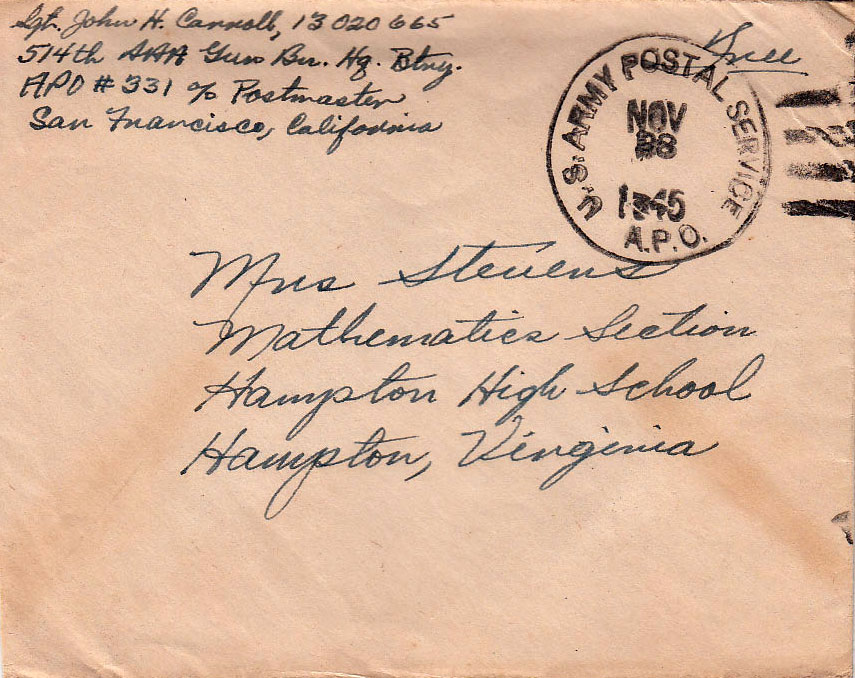 Sgt. John H. Carroll, 13 020 665
514th AAA Gun Bn. Hq. Btry.
APO # 331 c/o Postmaster
San Francisco, California
Free
U.S. ARMY POSTAL SERVICE
NOV
28
1945
A.P.O.
Mrs Stevens
Mathematics Section
Hampton High School
Hampton, Virginia